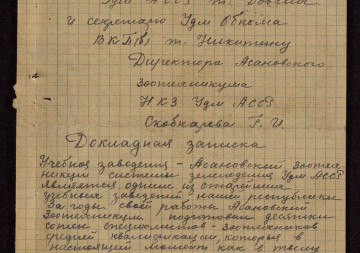 Удм АССР т.
и секретарю Удм Обкома
ВКП(б) т. Никитину
Директора Асановского
зоотехникума
НКЗ Удм АССР
Скобкарева Г. И.
Докладная записка
Учебное заведения - Асановский зоотех
никум системы земледелия Удм АССР
является одним из старейших
учебных заведений нашей республики
За годы своей работы Асановский
Зоотехникум подготовил десятки
сотни специалистов - Зоотехников
средней квалификации, которые в
настоящий момент как в тылу